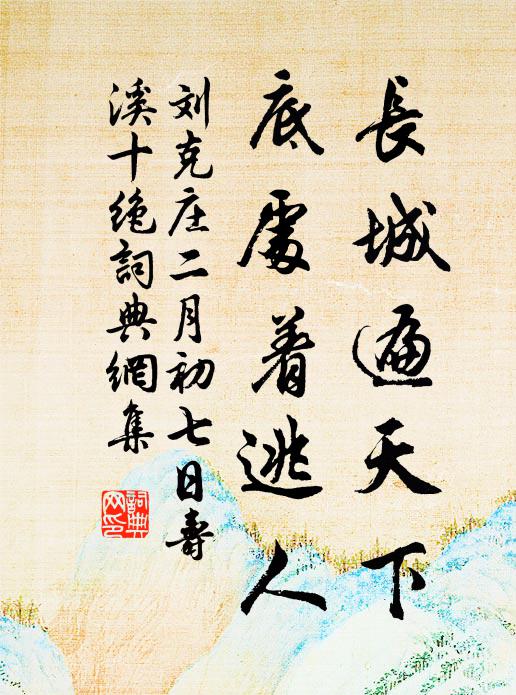 長城遍天下
底處着逃人
刘克庄二月初七日壽
溪十绝詞典網集
詞典
网印